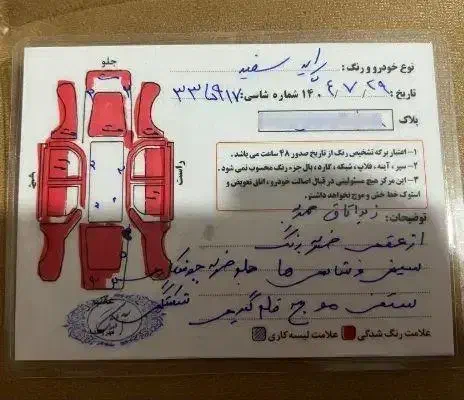 جلو
نوع خودرو و رنگ : پراید سفید
تاریخ: ۱۴۰۴/۷/۲۹ شماره شاسی:
پلاک
راست
۱- اعتبار برگه تشخیص رنگ از تاریخ صدور ۴۸ ساعت می باشد .
۲- سپر ، آینه ، قلاب ، شبکه ، کاره ، بال جزء رنگ محسوب نمی شود .
۳- این مرکز هیچ مسئولیتی در قبال اصالت خودرو ، اتاق تعویض و
استوک خط خش و موج نخواهد داشتو
توضیحات:
از عقب ضربه رنگ
سینی و شاسی ها جلو ضربه جوشکاری
ستون موج
علامت رنگ شدگی
علامت لیسه کاری